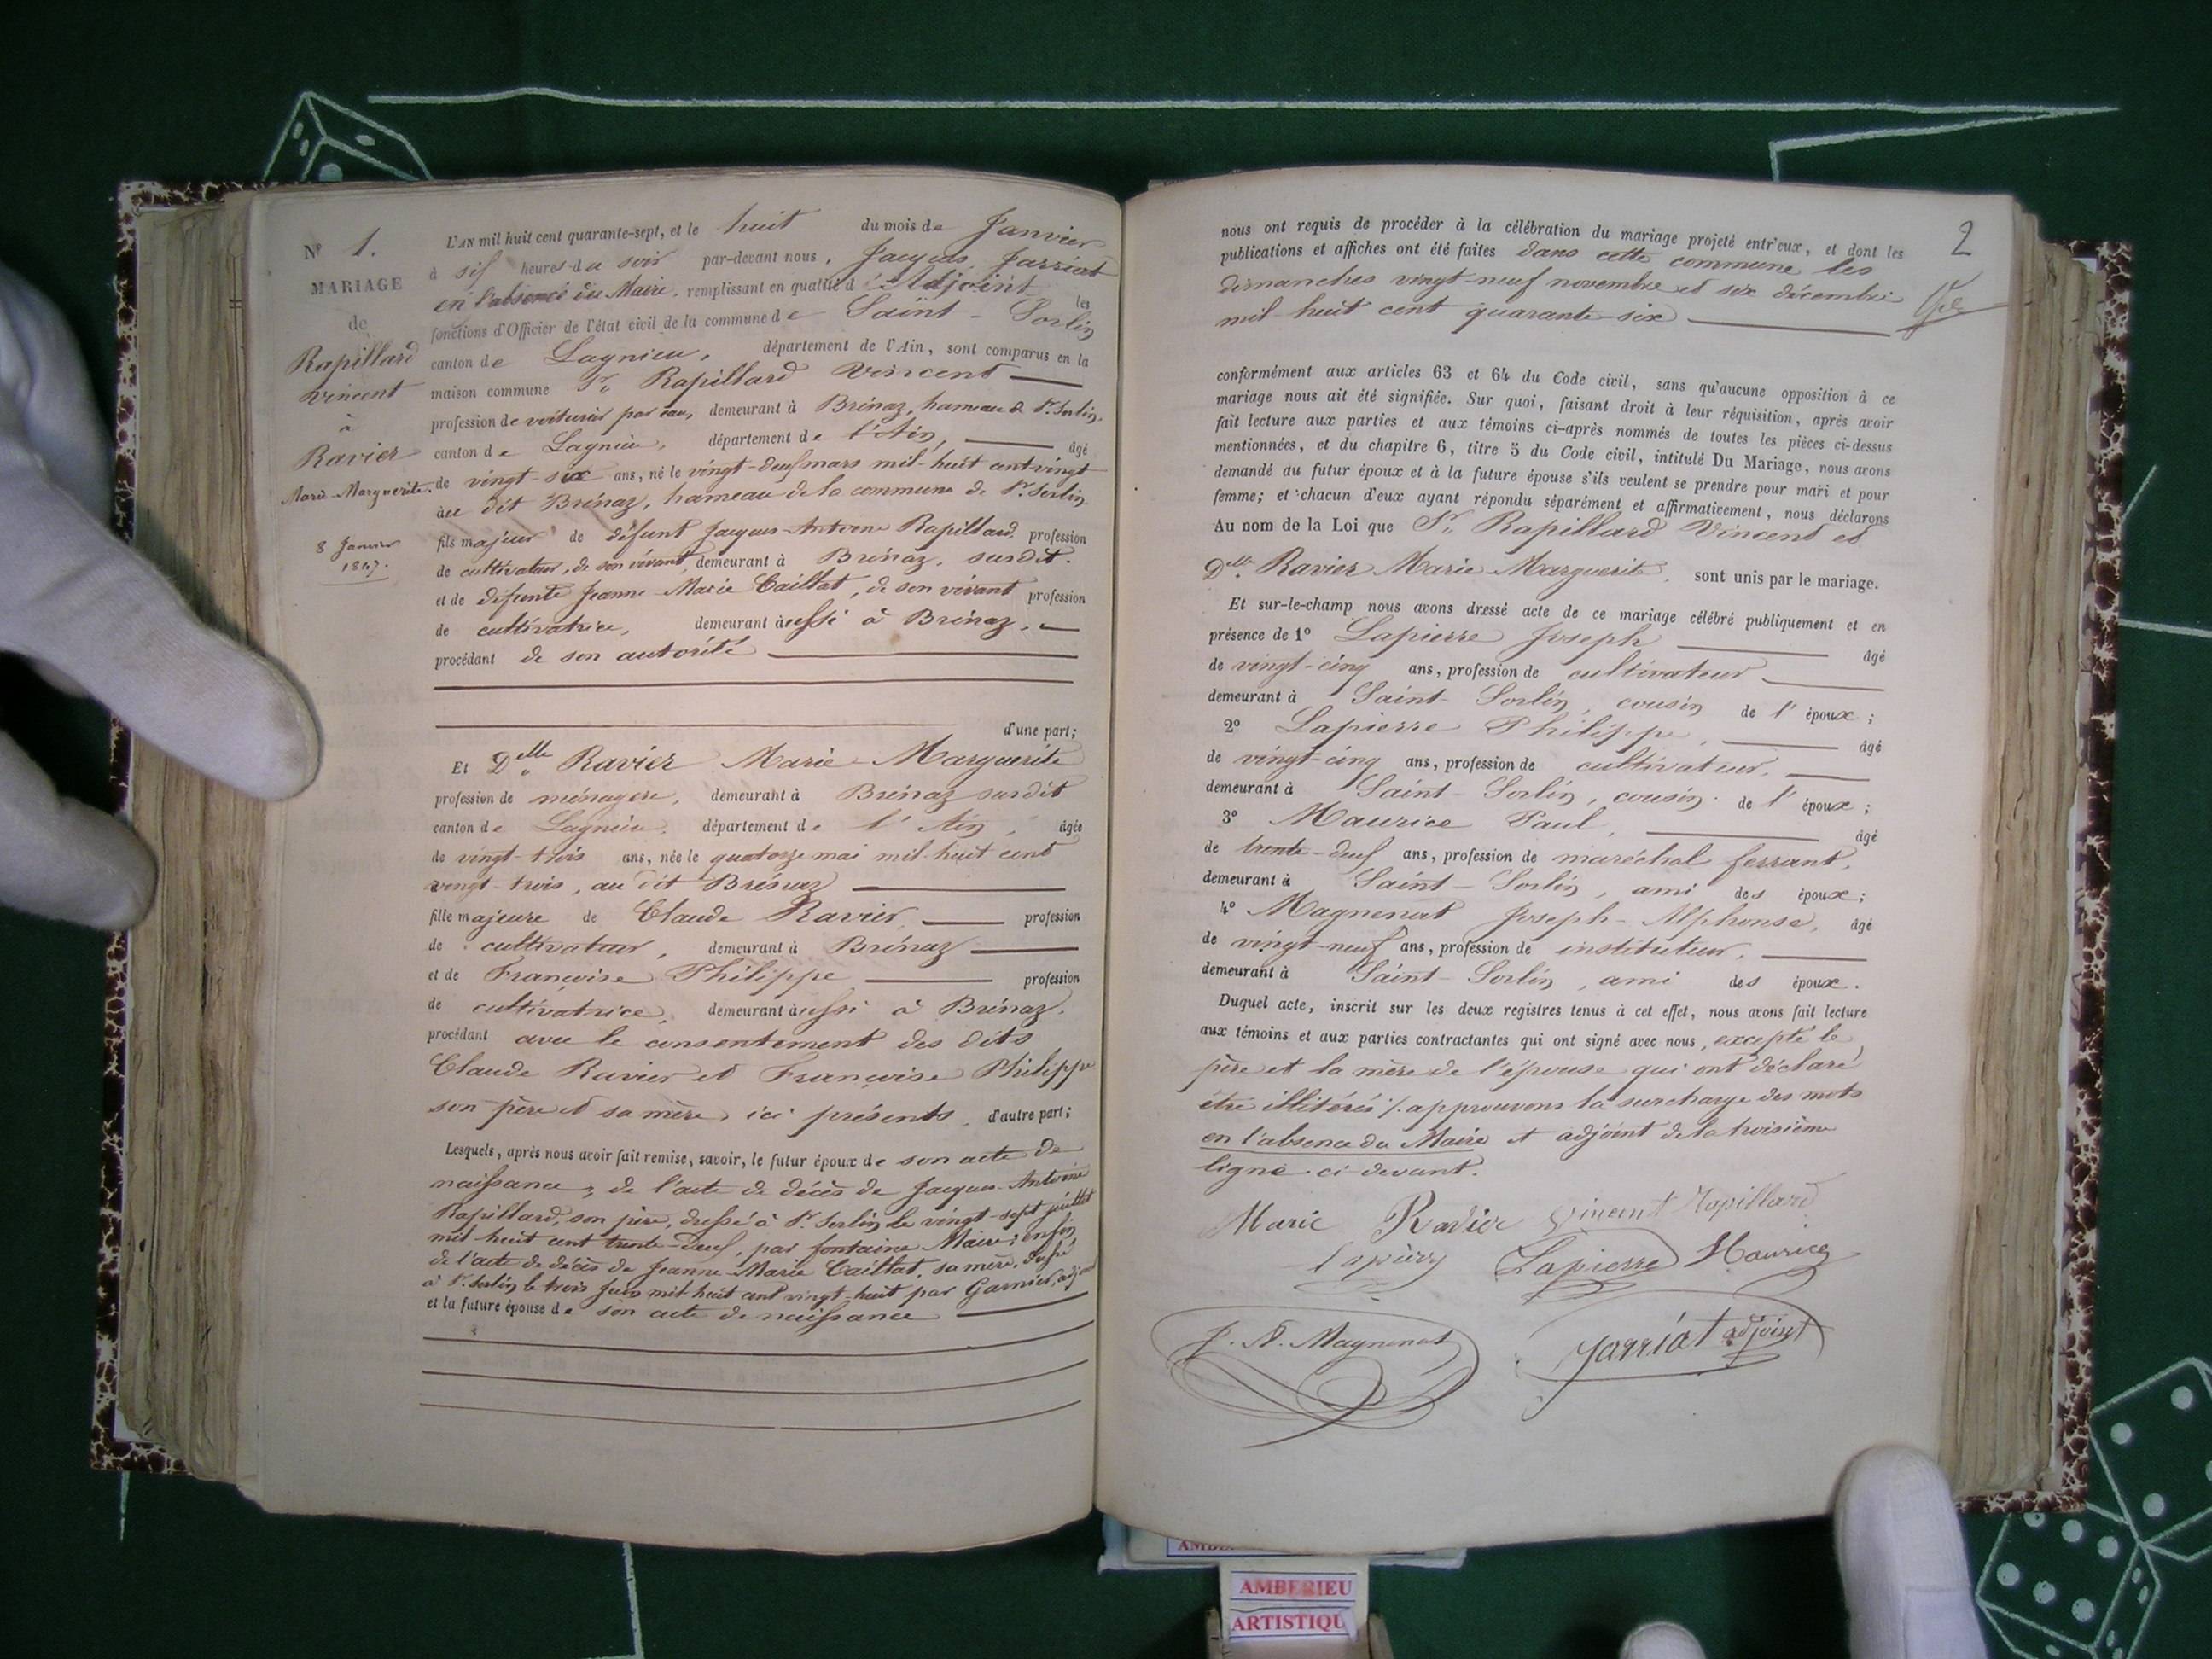 Nº 1.
MARIAGE
de
Rapillard
Vincent
à
Ravier
Marie-Marguerite.
8 Janvier
1847.
L'AN mil huit cent quarante-sept, et le huit du mois de Janvier
à six heures du soir par-devant nous, Jacques Jarriat
en l'absence du Maire, remplissant en qualité d'Adjoint les
fonctions d'Officier de l'état civil de la commune de Saint-Sorlin
canton de Lagnieu, département de l'Ain, sont comparus en la
maison commune Sr. Rapillard Vincent
profession de voiturier par eau, demeurant à Brénaz, hameau de St. Sorlin,
canton de Lagnieu, département de l'Ain, âgé
de vingt-six ans, né le vingt-deux mars mil-huit cent vingt
au dit Brénaz, hameau de la commune de St. Sorlin
fils majeur de défunt Jacques-Antoine Rapillard, profession
de cultivateur, de son vivant, demeurant à Brénaz, susdit.
et de défunte Jeanne-Marie Caillat, de son vivant profession
de cultivatrice, demeurant aussi à Brénaz,
procédant de son autorité
d'une part;
Et Delle. Ravier Marie-Marguerite
profession de ménagère, demeurant à Brénaz susdit
canton de Lagnieu, département de l'Ain, âgée
de vingt-trois ans, née le quatorze mai mil-huit cent
vingt-trois, au dit Brénaz
fille majeure de Claude Ravier, profession
de cultivateur, demeurant à Brénaz
et de Françoise Philippe profession
de cultivatrice, demeurant aussi à Brénaz.
procédant avec le consentement des dits
Claude Ravier et Françoise Philippe
son père et sa mère, ici présents, d'autre part;
Lesquels, après nous avoir fait remise, savoir, le futur époux de son acte de
naissance, de l'acte de décès de Jacques-Antoine
Rapillard, son père, dressé à St. Sorlin le vingt-sept juillet
mil huit cent trente-deux, par fontaine Maire; enfin
de l'acte de décès de Jeanne-Marie Caillat, sa mère, dressé
à St. Sorlin le trois Juin mil huit cent vingt-huit par Garnier, adjoint
et la future épouse de son acte de naissance
2
nous ont requis de procéder à la célébration du mariage projeté entr'eux, et dont les
publications et affiches ont été faites dans cette commune les
dimanches vingt-neuf novembre et six décembre
mil-huit cent quarante-six
conformément aux articles 63 et 64 du Code civil, sans qu'aucune opposition à ce
mariage nous ait été signifiée. Sur quoi, faisant droit à leur réquisition, après avoir
fait lecture aux parties et aux témoins ci-après nommés de toutes les pièces ci-dessus
mentionnées, et du chapitre 6, titre 5 du Code civil, intitulé Du Mariage, nous avons
demandé au futur époux et à la future épouse s'ils veulent se prendre pour mari et pour
femme; et chacun d'eux ayant répondu séparément et affirmativement, nous déclarons
Au nom de la Loi que Sr. Rapillard Vincent et
Delle. Ravier Marie-Marguerite, sont unis par le mariage.
Et sur-le-champ nous avons dressé acte de ce mariage célébré publiquement et en
présence de 1º Lapierre Joseph âgé
de vingt-cinq ans, profession de cultivateur
demeurant à Saint-Sorlin, cousin de l'époux;
2º Lapierre Philippe, âgé
de vingt-cinq ans, profession de cultivateur,
demeurant à Saint-Sorlin, cousin de l'époux;
3º Maurice Paul, âgé
de trente-deux ans, profession de maréchal ferrant,
demeurant à Saint-Sorlin, ami des époux;
4º Magnenat Joseph-Alphonse, âgé
de vingt-neuf ans, profession de instituteur,
demeurant à Saint-Sorlin, ami des époux.
Duquel acte, inscrit sur les deux registres tenus à cet effet, nous avons fait lecture
aux témoins et aux parties contractantes qui ont signé avec nous, excepté le
père et la mère de l'épouse qui ont déclaré
être illitérés /. approuvons la surcharge des mots
en l'absence du Maire et adjoint de la troisième
ligne ci-devant.
Marie Ravier Vincent Rapillard
Lapierre Lapierre Maurice
J. A. Magnenat Jarriat adjoint
AMBERIEU
ARTISTIQU